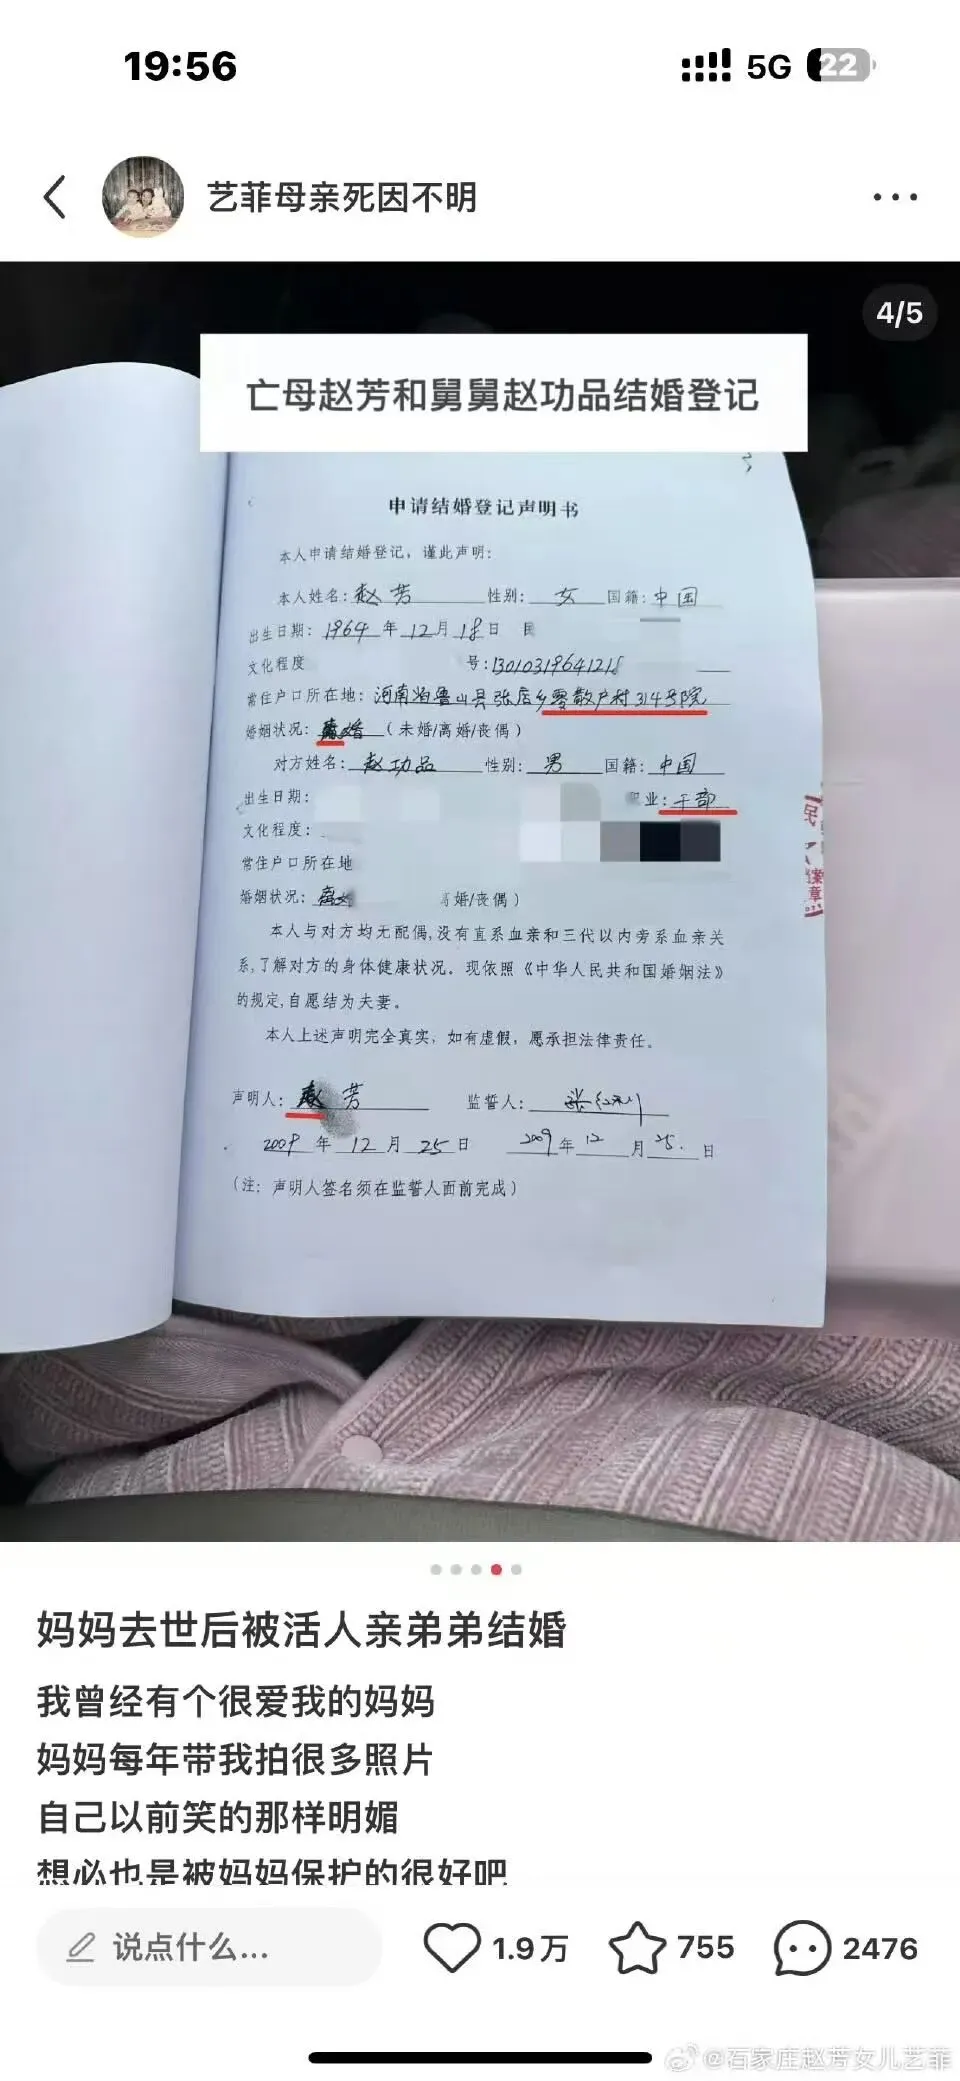 19:56
5G
22
艺菲母亲死因不明
4/5
亡母赵芳和舅舅赵功品结婚登记
申请结婚登记声明书
本人申请结婚登记，谨此声明：
本人姓名：赵芳 性别：女 国籍：中国
出生日期：1964年12月18日
文化程度 号：13010319641218
常住户口所在地：河南省鲁山县张店乡零散户村314号院
婚姻状况：离婚（未婚/离婚/丧偶）
对方姓名：赵功品 性别：男 国籍：中国
出生日期： 业：干部
文化程度：
常住户口所在地
婚姻状况： 婚/丧偶）
本人与对方均无配偶,没有直系血亲和三代以内旁系血亲关
系,了解对方的身体健康状况。现依照《中华人民共和国婚姻法》
的规定,自愿结为夫妻。
本人上述声明完全真实，如有虚假，愿承担法律责任。
声明人：赵芳 监誓人：
2009年12月25日 2009年12月25日
（注：声明人签名须在监誓人面前完成）
妈妈去世后被活人亲弟弟结婚
我曾经有个很爱我的妈妈
妈妈每年带我拍很多照片
自己以前笑的那样明媚
想必也是被妈妈保护的很好吧
说点什么...
1.9万
755
2476
@石家庄赵芳女儿艺菲